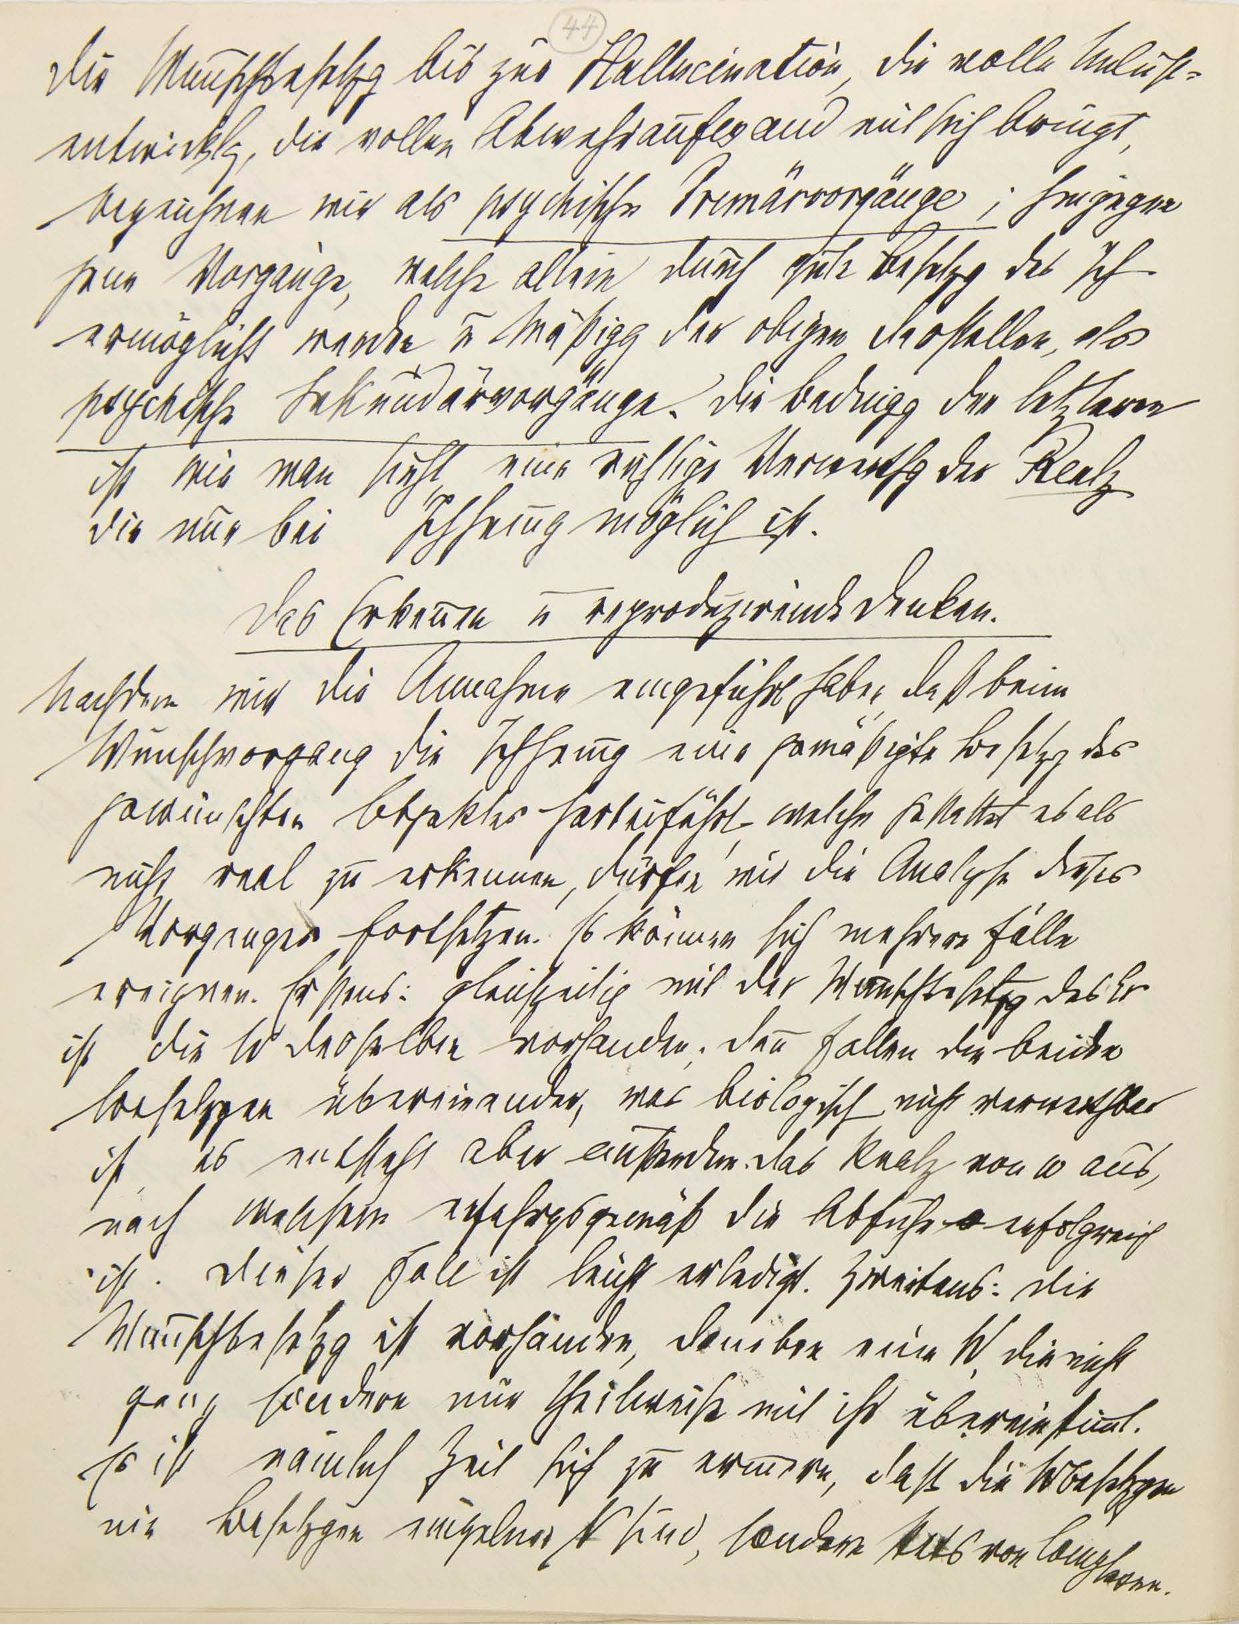 44
die Wunschbesetzg bis zur Hallucination, die volle Unlust-
entwicklg, die vollen Abwehraufwand mit sich bringt,
bezeichnen wir als psychische Primärvorgänge; hingegen
jene Vorgänge, welche allein durch gute Besetzg des Ich
ermöglicht werden u Mäßigg der obigen darstellen, als
psychische Sekundärvorgänge. Die Bedingg der letzteren
ist wie man sieht, eine richtige Verwerthg der Realz
die nur bei Ichhemmg möglich ist.
Das Erkennen u reproduzirende Denken.
Nachdem wir die Annahme eingeführt haben, daß beim
Wunschvorgang die Ichhemmg eine gemäßigte Besetzg des
gewünschten Objektes herbeiführt, welche gestattet es als
nicht real zu erkennen, dürfen wir die Analyse dieses
Vorganges fortsetzen. Es können sich mehrere Fälle
ereignen. Erstens: gleichzeitig mit der Wunschbesetzg des Er
ist die W desselben vorhanden; dann fallen die beiden
Besetzgen übereinander, was biologisch nicht verwerthbar
ist, es entsteht aber außerdem das Realz von W aus,
nach welchem erfahrgsgemäß die Abfuhr erfolgreich
ist. Dieser Fall ist leicht erledigt. Zweitens: die
Wunschbesetzg ist vorhanden, daneben eine W, die nicht
ganz sondern nur theilweise mit ihr übereinstimmt.
Es ist nämlich Zeit sich zu erinnern, daß die Wbesetzgen
nie Besetzgen einzelner N sind, sondern stets von Complexen.